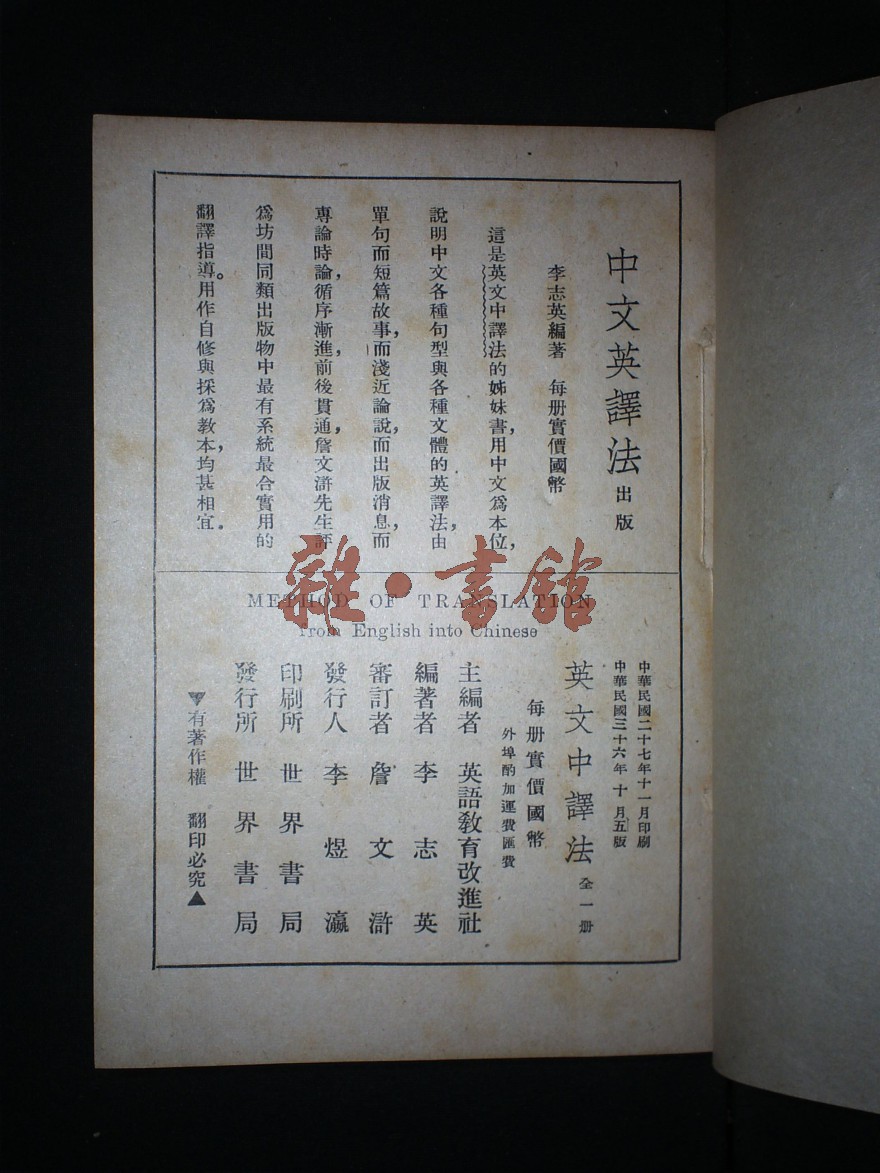 中文英譯法 出版
李志英編著 每册實價國幣
這是英文中譯法的姊妹書,用中文爲本位,
說明中文各種句型與各種文體的英譯法,由
單句而短篇故事,而淺近論說,而出版消息,而
專論時論,循序漸進,前後貫通,詹文滸先生評
爲坊間同類出版物中最有系統最合實用的
翻譯指導。用作自修與採爲教本,均甚相宜。
雜·書館
METHOD OF TRANSLATION
from English into Chinese
中華民國二十七年十一月印刷
中華民國三十六年十月五版
英文中譯法 全一册
每册實價國幣
外埠酌加運費匯費
主編者 英語敎育改進社
編著者 李志英
審訂者 詹文滸
發行人 李煜瀛
印刷所 世界書局
發行所 世界書局
▼有著作權 翻印必究▲